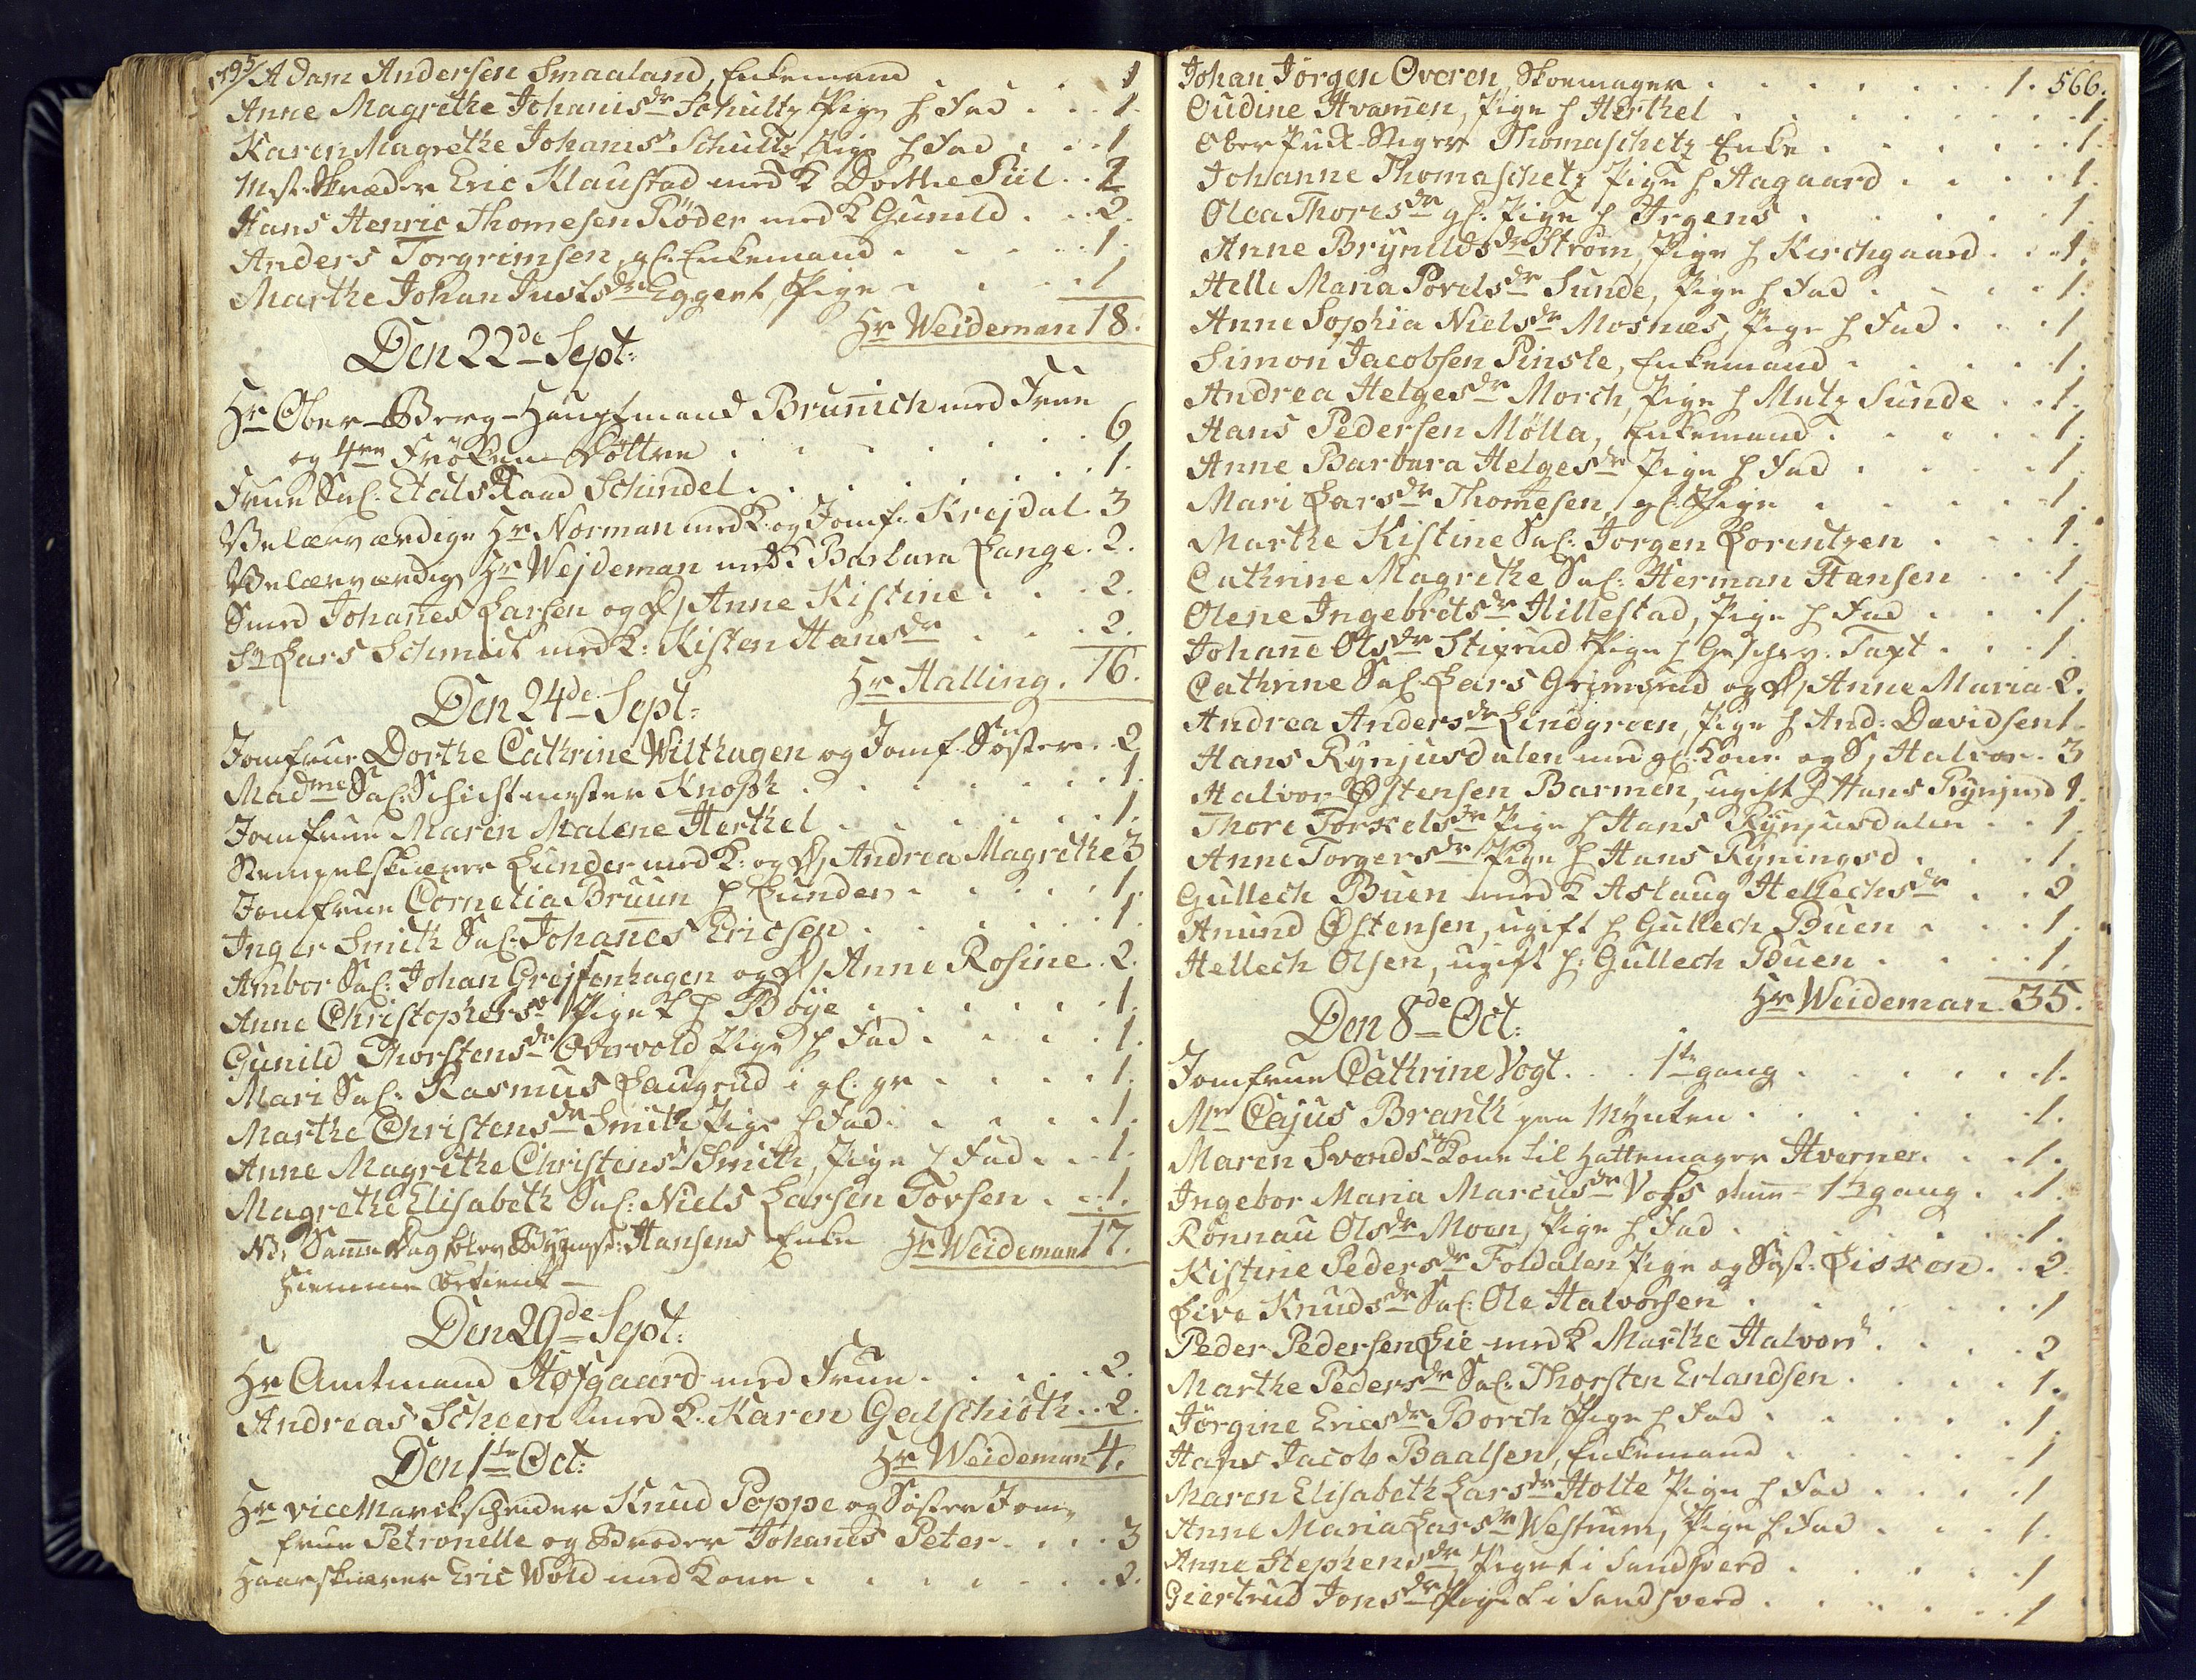 1795/ Adam Andersen Smaaland, Enkemand . . . 1
Anne Magrethe Johanisdr Schultz Pige h Fad . . . 1.
Karen Magrethe Johanisdr Schultz, Pige h Fad . . . 1
Mst. Skræder Eric Klaustad med K Dorthe Piil . . 2
Hans Henric Thomesen Röder med K Gunild . . . 2.
Anders Torgrimsen, gl. Enkemand . . . . 1.
Marthe Johan Justsdr Eggert, Pige . . . . 1
Hr Weideman 18.
Den 22de Sept:
Hr Ober-Berg-Hauptmand Brunich med Frue
og 4re Fröken Döttre . . . . . . 6
Frue Sal. Etats Raad Schindel . . . . . . 1.
Velærværdige Hr Norman med K. og Jomf. Krejdal. 3
Velærværdige Hr Wejdeman med K Barbara Lange. 2.
Smed Johanes Larsen og D/ Anne Kistine . . . 2.
Sr Lars Schmidt med K: Kisten Hansdr . . . 2.
Hr Halling. 16.
Den 24de Sept:
Jomfrue Dorthe Cathrine Wilthagen og Jomf. Söster . 2
Madme Sal: Schichtmester Knoph . . . . . . 1.
Jomfrue Maren Malene Herthel . . . . . . 1.
Stempelskiærer Lunder med K: og D/ Andrea Magrethe 3
Jomfrue Cornelia Bruun h Lunder . . . . . 1.
Inger Smith Sal. Johanes Ericsen . . . . . 1.
Ambor Sal: Johan Grejfenhagen og D/ Anne Rosine . 2.
Anne Christophersdr Pige t h Böye . . . . . . 1.
Gunild Thorstensdr Overvold Pige h Fad . . . . 1.
Mari Sal. Rasmus Laugrud i gl. gr . . . . 1.
Marthe Christensdr Smith Pige h Fad . . . . 1.
Anne Magrethe Christensdr Smith, Pige h Fad . . . 1.
Magrethe Elisabeth Sal: Niels Larsen Torsen . . . 1.
NB. Samme Dag blev Hansens Enke Hr Weideman 17.
hiemme betient —
Den 29de Sept:
Hr Amtmand Høfgaard med Frue . . . . 2.
Andreas Scheen med K. Karen Galschiöth . . 2.
Hr Weideman 4.
Den 1te Oct:
Hr vice Marckscheider Knud Poppe og Söster Jom-
frue Petronelle og Broder Johanes Peter . . . . 3
Haarskiærer Eric Wold med Kone . . . . . . 2.
Johan Jörgen Overen, Skoemager . . . . . . 1. 566.
Oudine Hvamen, Pige h Herthel . . . . . . 1.
Ober Puk-Stiger Thomaschetz Enke . . . . . 1.
Johanne Thomaschetz Pige h Aagaard . . . . 1.
Olea Thoresdr gl. Pige h Irgens . . . . . 1.
Anne Brynildsdr Ström, Pige h Kirchgaard . . . 1.
Helle Maria Povelsdr Sunde, Pige h Fad . . . . 1.
Anne Sophia Nielsdr Mosnæs, Pige h Fad . . . 1
Simon Jacobsen Pinsle, Enkemand . . . . . 1.
Andrea Helgesdr Morch, Pige h Mutz Sunde . . 1.
Hans Pedersen Mölla, Enkemand . . . . . 1.
Anne Barbara Helgesdr Pige h Fad . . . . . 1
Mari Larsdr Thomesen, gl. Pige . . . . . 1
Marthe Kistine Sal: Jorgen Lorentzen . . . 1.
Cathrine Magrethe Sal: Herman Hansen . . . 1
Olene Ingebretsdr Hillestad, Pige h Fad . . . 1
Johane Olsdr Stigrud Pige h Geschw. Taxt . . . 1
Cathrine Sal. Lars Grimsrud og D/ Anne Maria 2.
Andrea Andersdr Lindgreen, Pige h And. Davidsen 1.
Hans Rynjusdalen med gl. Kone og S/ Halvor . 3
Halvor Østensen Barmen, ugift h Hans Rynjusd 1.
Thore Torkelsdr Pige h Hans Rynjusdalen . . 1
Anne Torgersdr Pige h Hans Ryningsd . . . . 1.
Gullech Buen med K Aslaug Hellechsdr . . 2
Anund Østensen, ugift h Gullech Buen . . . 1.
Hellech Olsen, ugift h: Gullech Buen . . . . 1.
Hr Weideman 35.
Den 8de Oct:
Jomfrue Cathrine Vogt . . . 1te gang . . . . . . 1.
Mr Cajus Branth paa Mynten . . . . . . 1.
Maren Svendsdr Kone til Hattemager Hverner . . . 1.
Ingebor Maria Marcusdr Vofs 1te gang . . . 1.
Rönnau Olsdr Moen, Pige h Fad . . . . . . 1.
Kistine Pedersdr Foldalen Pige og Søst. Lisken . . 2.
Live Knudsdr Sal: Ole Halvorsen . . . . . . 1
Peder Pedersen Lie med K Marthe Halvorsdr . . . . 2
Marthe Pedersdr Sal. Thorsten Erlandsen . . . . 1.
Jörgine Ericsdr Borch Pige h Fad . . . . . 1.
Hans Jacob Baalsen, Enkemand . . . . . 1
Maren Elisabeth Larsdr Holte Pige h Fad . . . . 1
Anne Maria Larsdr Westrum, Pige h Fad . . . . 1.
Anne Stephensdr, Pige t i Sandsverd . . . . . 1
Giertrud Jonsdr Pige t i Sandsverd . . . . . . 1